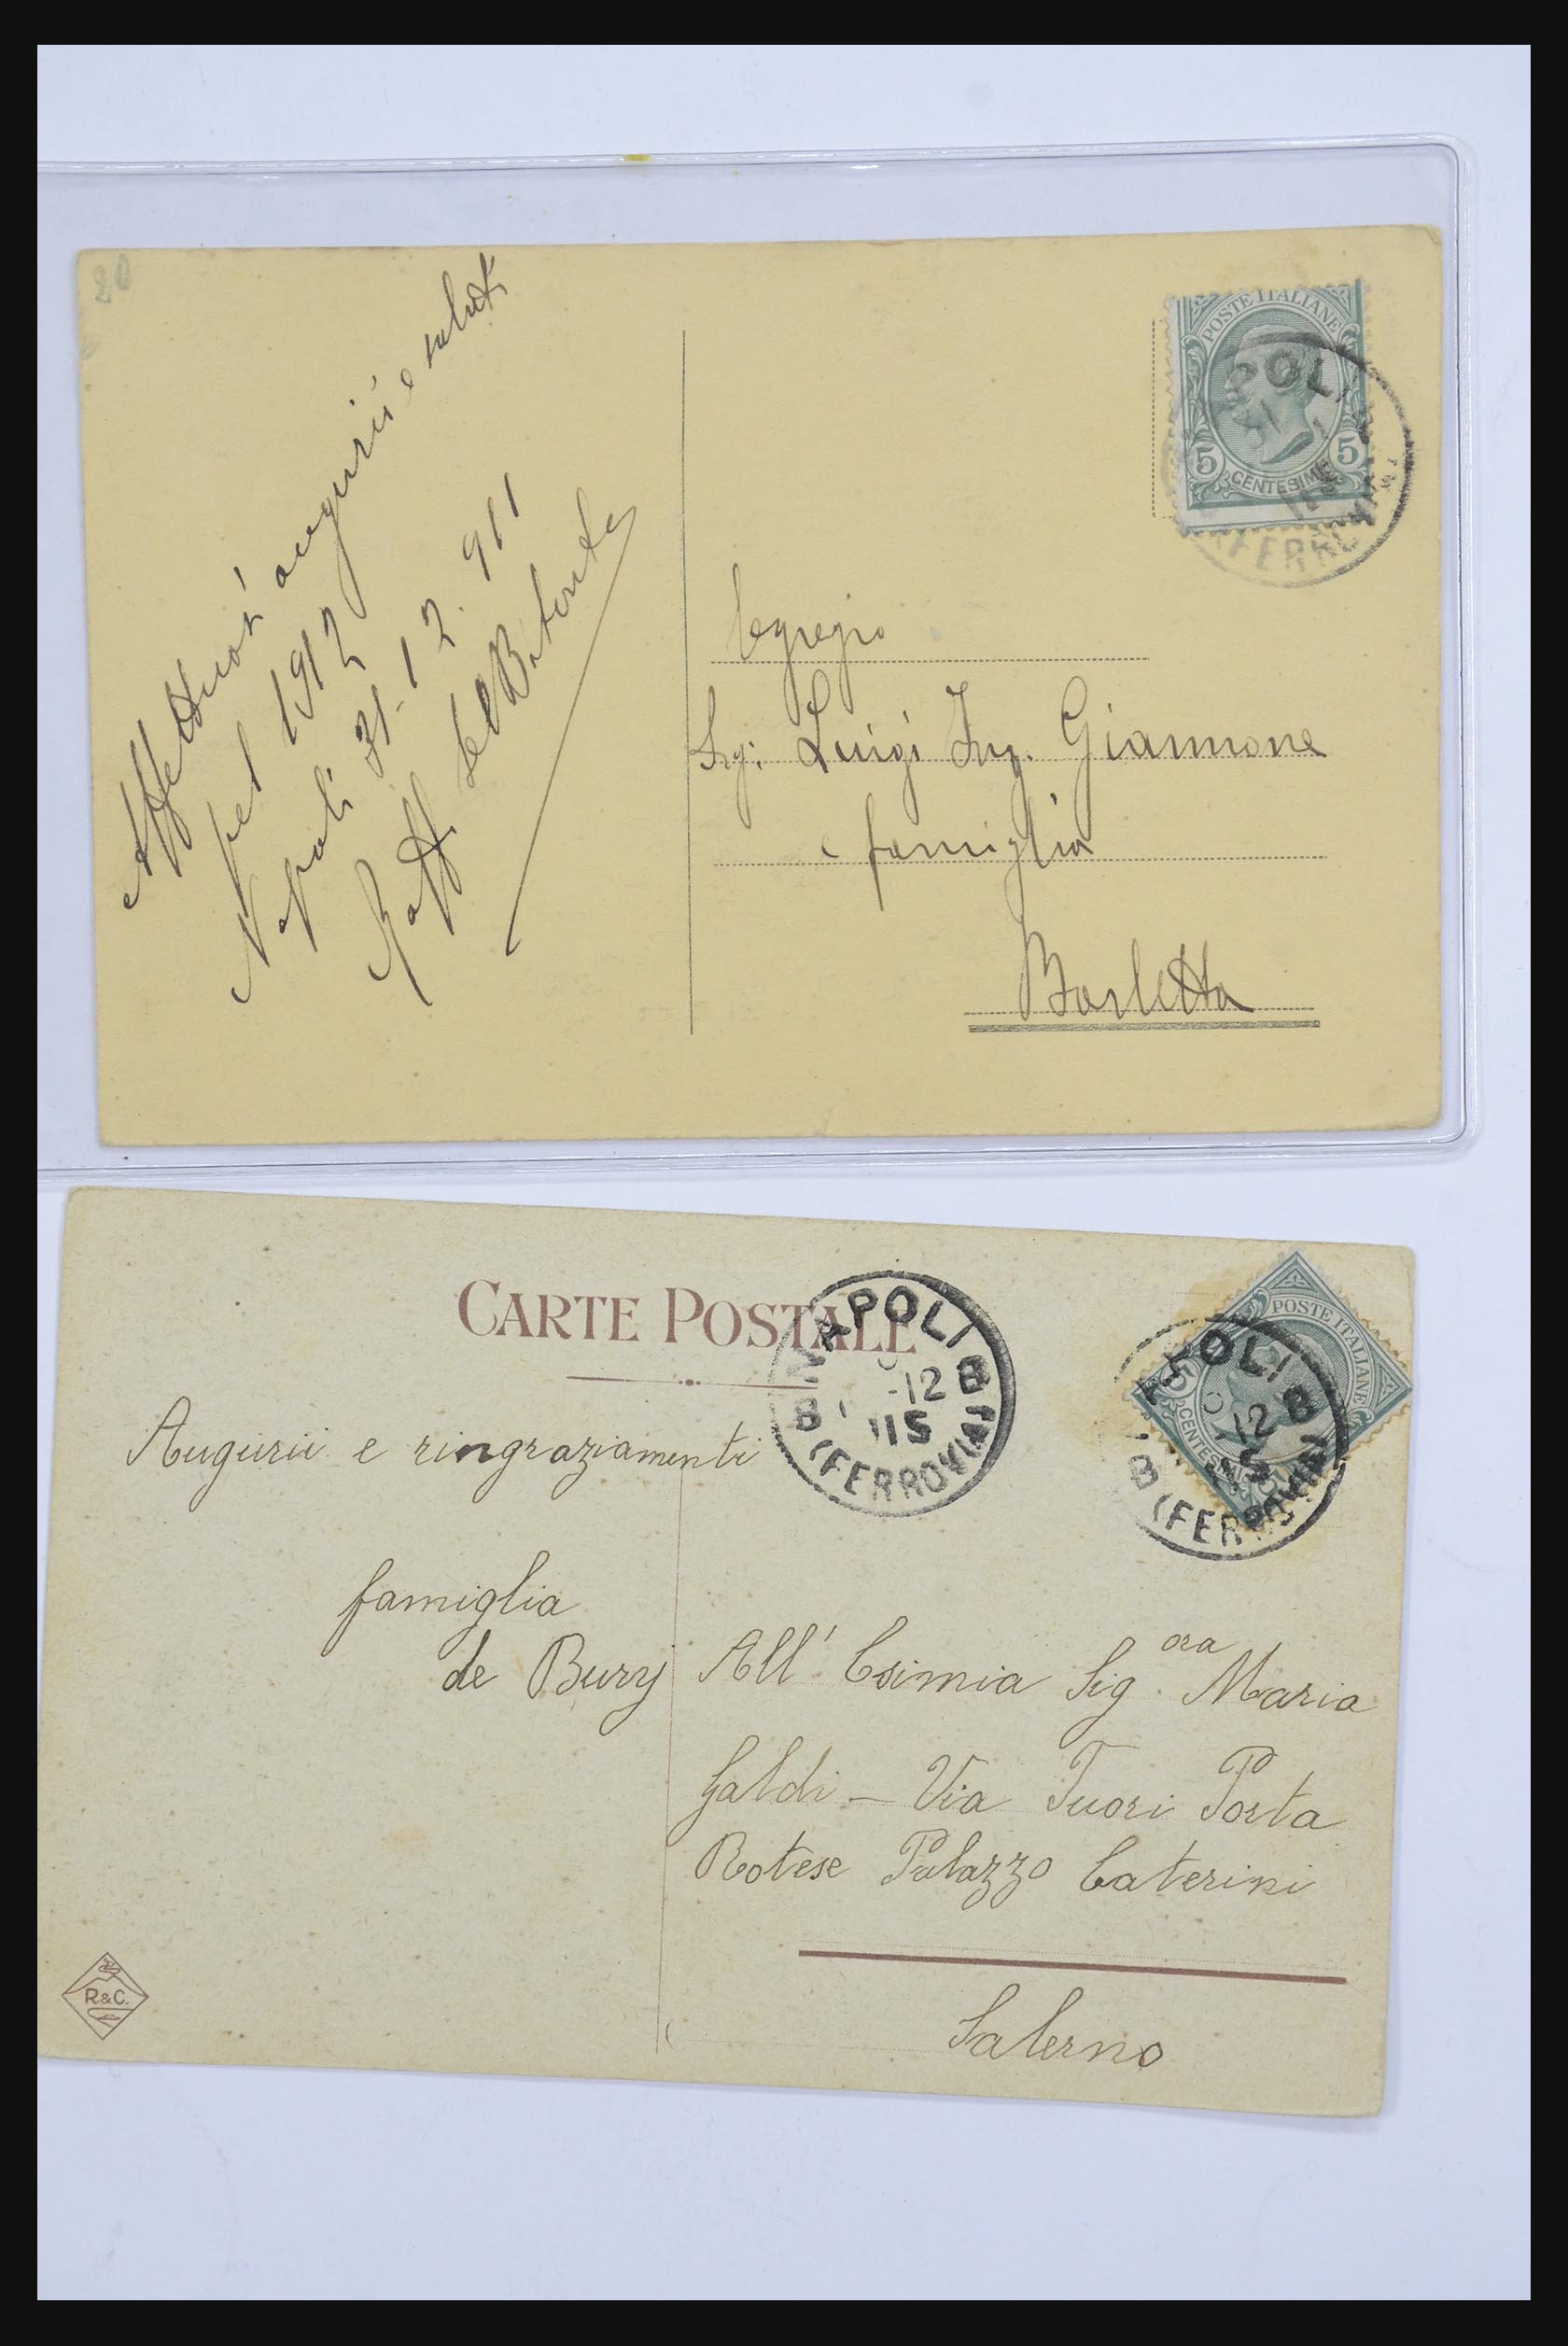 20
Affettuosi augurii e saluti
pel 1912
Napoli 31-12.911
Raff.
POSTE ITALIANE
5 CENTESIMI 5
NAPOLI
(FERROVIA)
Egregio
Sig: Luigi Ing. Giannone
e famiglia
Barletta
CARTE POSTALE
NAPOLI
-12 B
B 11S
(FERROVIA)
POSTE ITALIANE
5 CENTESIMI
NAPOLI
12 B
B 11S
(FERROVIA)
Augurii e ringraziamenti
famiglia
de Bury
All' Esimia Sig.ora Maria
Galdi - Via Fuori Porta
Rotese Palazzo Caterini
Salerno
R&C.